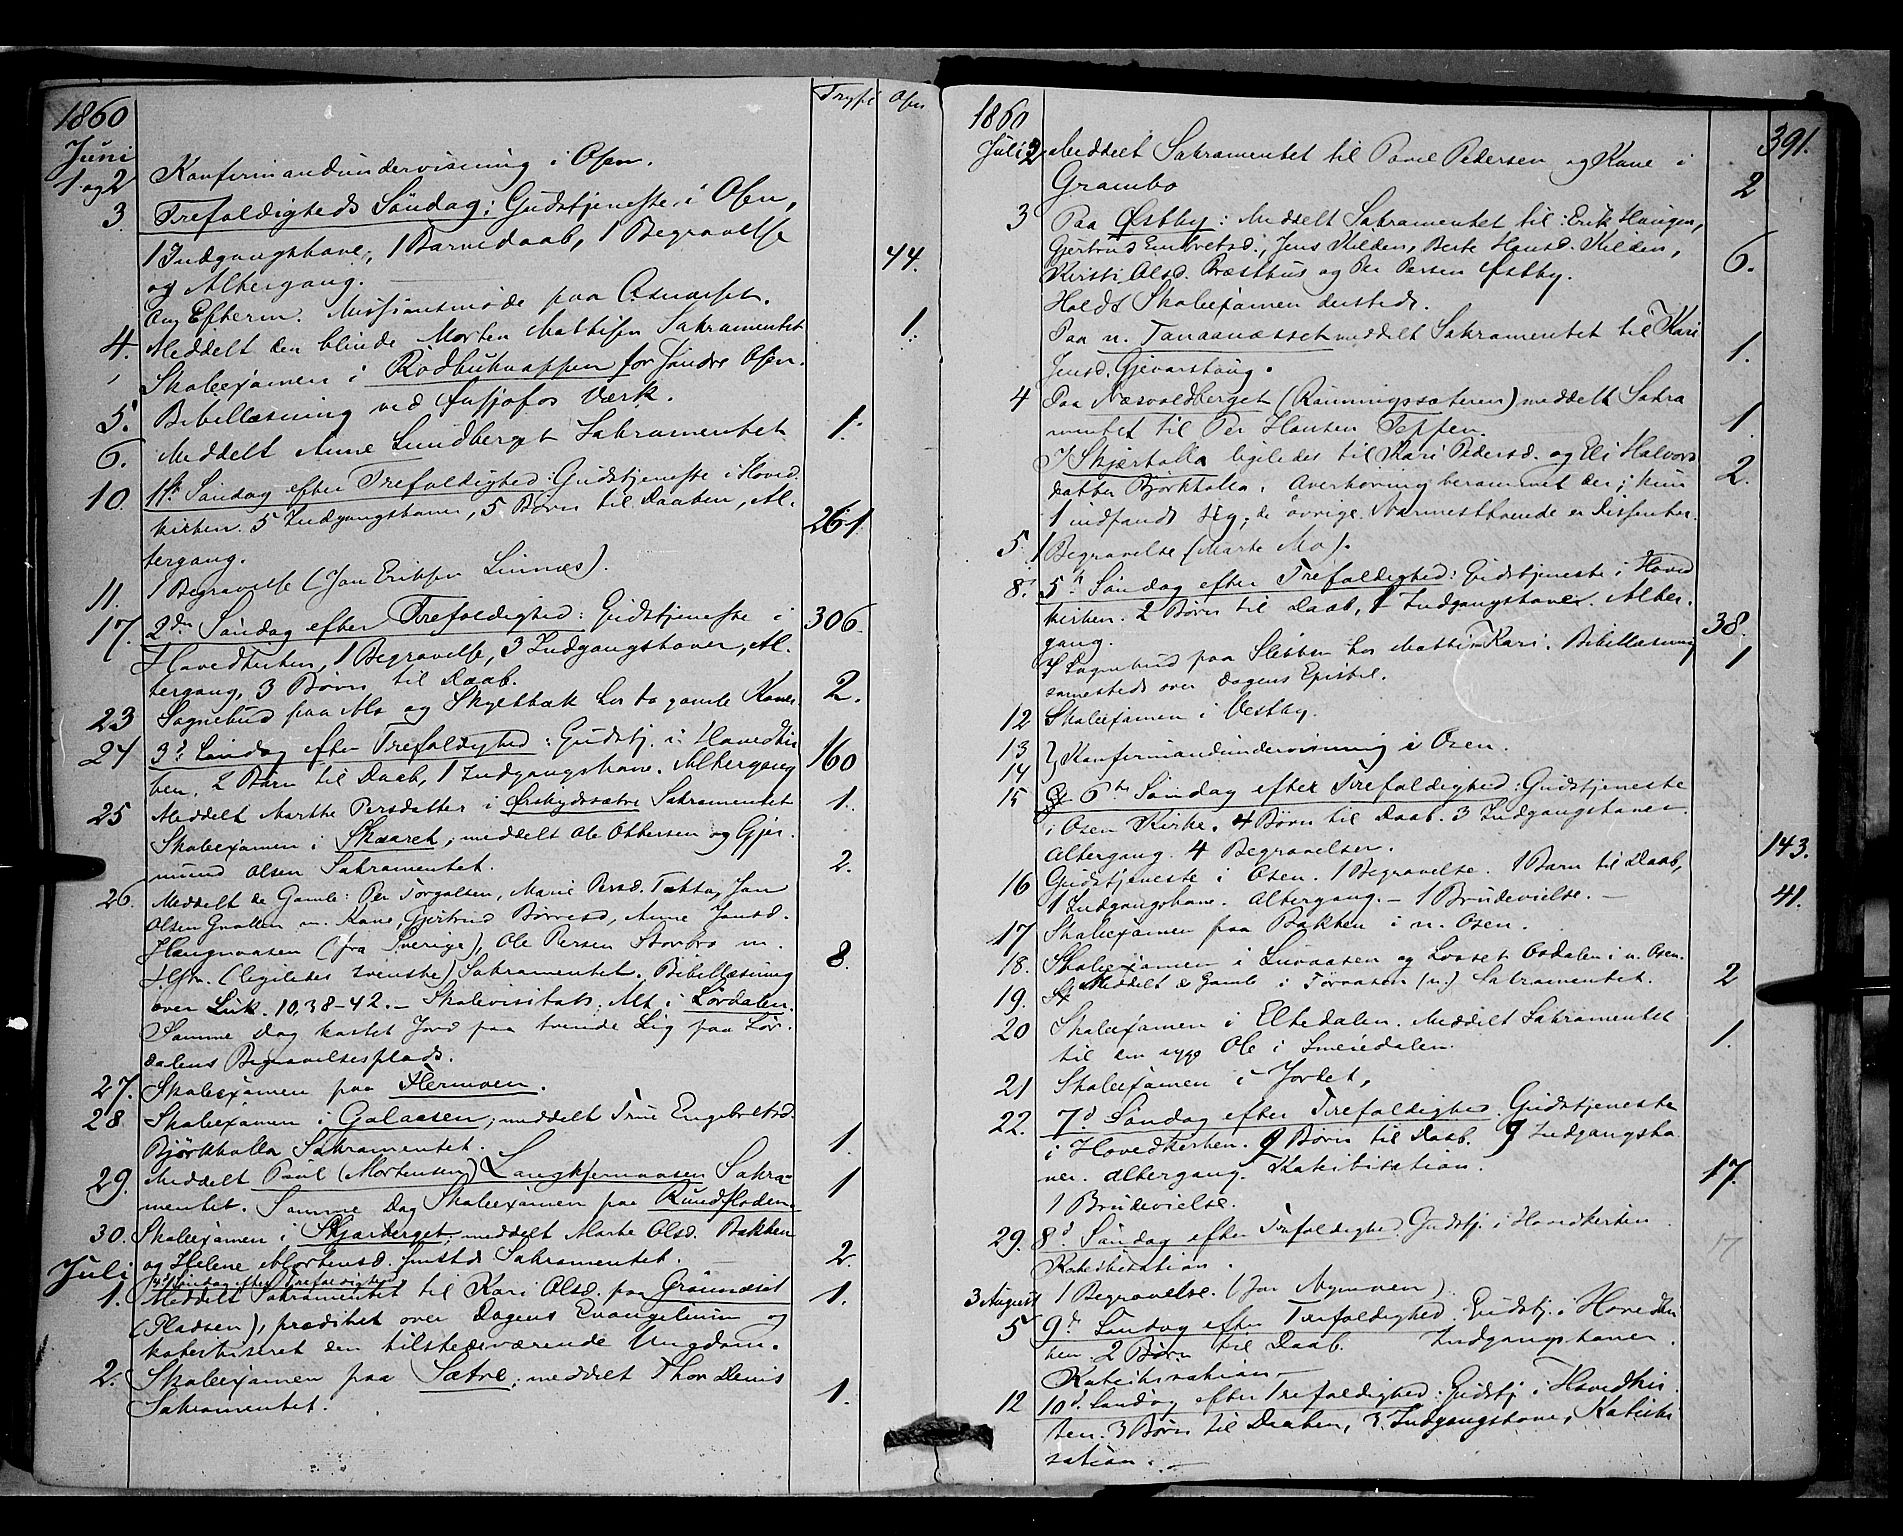 Trysil Osen
1860
Juni
1 og 2 Konfirmandundervisning i Osen.
3. Trefoldigheds Søndag: Gudstjeneste i Osen,
1 Indgangskone, 1 Barnedaab, 1 Begravelse
og Altergang. 44.
Om Efterm. Missionsmøde paa Osnæsset.
4. Meddelt den blinde Morten Mattisen Sakramentet 1.
Skoleexamen i Rødbuknappen for søndre Osen.
5. Bibellæsning ved Osfjofos Værk.
6. Meddelt Anne Lundberget Sakramentet 1.
10. 1ste Søndag efter Trefoldighed: Gudstjeneste i Hoved
kirken. 5 Indgangskoner, 5 Børn til Daaben, Al- 261.
tergang.
11. 1 Begravelse (Jon Eriksen Linnæs).
17. 2den Søndag efter Trefoldighed: Gudstjeneste i 306.
Hovedkirken, 1 Begravelse, 3 Indgangskoner, Al-
tergang, 3 Børn til Daab.
23 Sognebud paa Mo og Skyltbæk hos to gamle Koner 2.
24 3d Søndag efter Trefoldighed: Gudstj. i Hovedkir 160
ken. 2 Børn til Daab, 1 Indgangskone. Altergang
25 Meddelt Marthe Persdatter i Ørskydsætre Sakramentet 1.
Skoleexamen i Skaaret; meddelt Ole Ottersen og Gjer-
mund Olsen Sakramentet. 2.
26. Meddelt de Gamle: Per Torgalsen, Marie Persd. Jon
Olsen m. Kone, Gjertrud Børresd, Anne Jonsd.
(fra Sverige), Ole Persen Storbro m. 8.
Hstr. (ligeledes svenske) Sakramentet. Bibellæsning
over Luk. 10,38-42. - Skolevisitats. Alt i Lørdalen.
Samme Dag kastet Jord paa trende Lig paa Lør-
dalens Begravelsesplads.
27. Skoleexamen paa Flermoen.
28 Skoleexamen i Galaasen; meddelt Trine Engebretsd.
Bjørkholla Sakramentet. 1.
29. Meddelt Paul (Mortensen) Langkjernaasen Sakra- 1
mentet. Samme Dag Skoleexamen paa Rundfloden.
30. Skoleexamen i Skjærberget, meddelt Marte Olsd. Bakken
og Helene Mortensd. Sakramentet. 2.
Juli 4d Søndag efter Trefoldighed
1. Meddelt Sakramentet til Kari Olsd. paa Grønnæset 1.
(Pladsen), prædiket over Dagens Evangelium og
katekiseret den tilstedeværende Ungdom.
2. Skoleexamen paa Sætre, meddelt Thor Denis
Sakramentet. 1.
1860 391.
Juli 2. Meddelt Sakramentet til Povel Pedersen og Kone i
Grambo 2
3 Paa Østby: Meddelt Sakramentet til: Erik Haugen,
Gjertrud Embretsd., Jens Kilden, Berte Hansd. Kilden, 6.
Kirsti Olsd. Præsthus og Per Persen Østby.
Holdt Skoleexamen dersteds.
Paa n. Tanaanæsset meddelt Sakramentet til Kari 1.
Jensd. Gjevarshaug.
4 Paa Næsvoldberget (Rønningssæteren) meddelt Sakra
mentet til Per Hansen Teppen. 1.
I Skjærholla ligeledes til Kari Pedersd. og Eli Halvors
datter Bjørkholla. Overhøring berammet der; kun 2.
1 indfandt sig, de øvrige Nærmestboende er Dissenter.
5. 1 Begravelse (Marte Mo).
8. 5te Søndag efter Trefoldighed: Gudstjeneste i Hoved
kirken. 2 Børn til Daab, 1 Indgangskoner. Alter-
gang. 38.
I Sognebud paa Sletten hos Mattis Kari. Bibellæsning 1
sammesteds over Dagens Epistel.
12 Skoleexamen i Vestby.
13
14 } Konfirmandundervisning i Osen.
15 6te Søndag efter Trefoldighed: Gudstjeneste
i Osen Kirke. 4 Børn til Daab. 3 Indgangskoner
Altergang. 4 Begravelser. 143.
16 Gudstjeneste i Osen. 1 Begravelse. 1 Barn til Daab,
1 Indgangskone. Altergang. - 1 Brudevielse. - 41.
17 Skoleexamen paa Bakken i n. Osen.
18. Skoleexamen i Luraasen og Losset Osdalen i n. Osen.
19. Meddelt de Gamle i Føraasen (n.) Sakramentet. 2
20 Skoleexamen i Eltedalen. Meddelt Sakramentet
til den syge Ole i Smeiedalen. 1.
21 Skoleexamen i Jordet,
22. 7d Søndag efter Trefoldighed. Gudstjeneste
i Hovedkirken. 9 Børn til Daab. 9 Indgangsko
ner. Altergang. Katekisation. 17.
1 Brudevielse.
29. 8d Søndag efter Trefoldighed. Gudstj. i Hovedkirken 17
Katekisation.
3 August 1 Begravelse. (Jon Nymoen)
5 9de Søndag efter Trefoldighed. Gudstj. i Hovedkir
ken. 2 Børn til Daab. Indgangskoner.
Katekisation
12 10d. Søndag efter Trefoldighed: Gudstj. i Hovedkir
ken. 3 Børn til Daaben, 3 Indgangskone, Kateki
sation. -